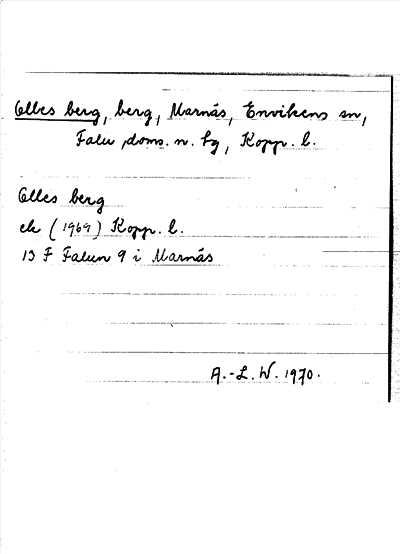 Olles berg, berg, Marnäs, Envikens sn,
Falu doms. n. tg, Kopp. l.
Olles berg
ek (1969) Kopp. l.
13 F Falun 9 i Marnäs
A.-L. W. 1970.